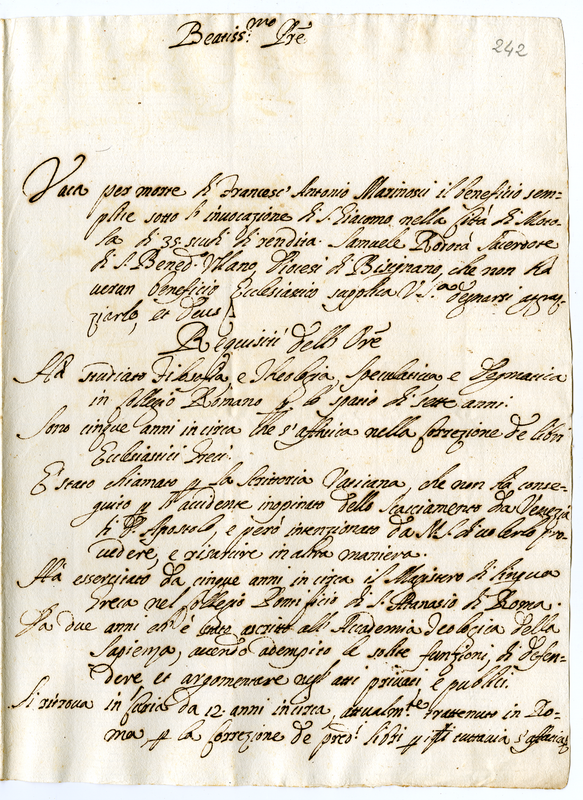 Beatiss.mo Pre
242
Vaca per morte di Francesc' Antonio Marinosci il beneficio sem=
plice sotto l'invocazione di S. Giacomo nella Città di Moto=
la di 35 scudi di rendita. Samuele Rodotà Sacerdote
di S. Bened.o Ullano, Diocesi di Bisignano, che non hà
verun beneficio Ecclesiastico supplica V. S.a degnarsi aggra=
ziarlo, et Deus
Requisiti dell' Ore
Hà studiato Filosofia, e Theologia, Speculativa e Dogmatica
in Collegio Romano p lo spatio di sette anni.
Sono cinque anni in circa che s'affatica nella Correzione de libri
Ecclesiastici Greci.
E' stato chiamato p la Scrittoria Vaticana, che non hà conse=
guito p l'accidente inopinato dello Scacciamento da Venezia
di Apostolo, e però intenzionato da di volerlo pro=
vedere, e in altra maniera.
Hà esercitato da cinque anni in circa il Magistero di lingua
Greca nel Collegio Pontificio di S. Attanasio di Roma.
Da due anni è stato ascritto all' Accademia Teologica della
Sapienza, avendo adempito le solite funzioni, di defen=
dere, et argomentare negl' atti privati e publici.
Si ritrova in Curia da 12 anni in circa, attualm.te trattenuto in Ro=
ma p la Correzione de pred.i libri p tuttavia s'affatica